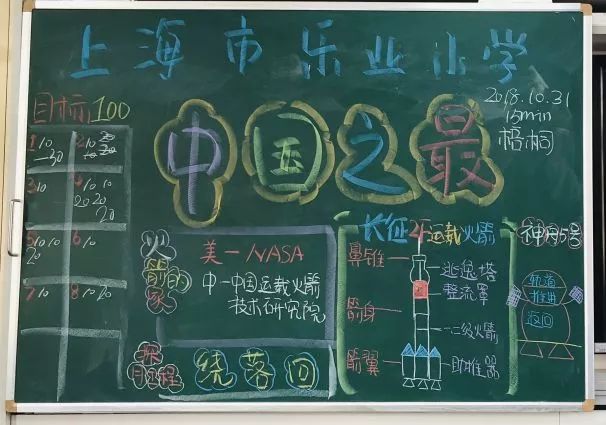 上海市乐业小学
2018.10.31
15min
梧桐
目标100
中国之最
1 10
-30
2 10 20
10 20
3 10
4 10 10
20 20
20
5 10 10
20
6 10
7 10
8 10 20
火箭的家
美-NASA
中-中国运载火箭
技术研究院
探月工程
绕落回
长征2F运载火箭
鼻锥
箭身
箭翼
逃逸塔
整流罩
一二级火箭
助推器
神舟5号
轨道
推进
返回